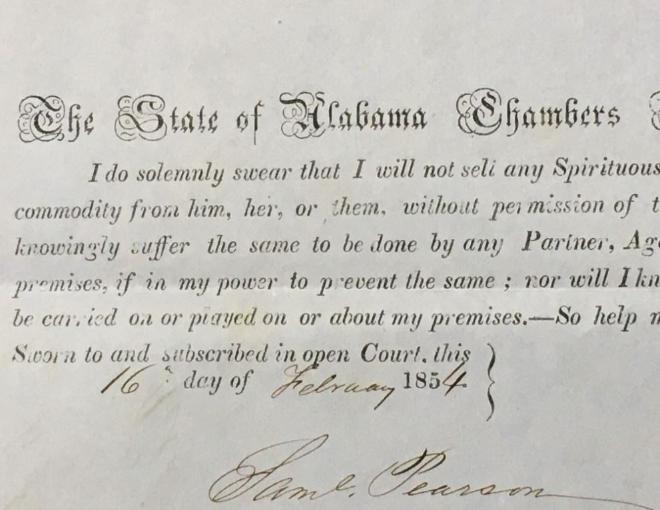 The State of Alabama Chambers
I do solemnly swear that I will not sell any Spirituous
commodity from him, her, or them, without permission of t
knowingly suffer the same to be done by any Partner, Age
premises, if in my power to prevent the same ; nor will I kn
be carried on or played on or about my premises.—So help m
Sworn to and subscribed in open Court, this
16th day of February 1854
Saml. Pearson